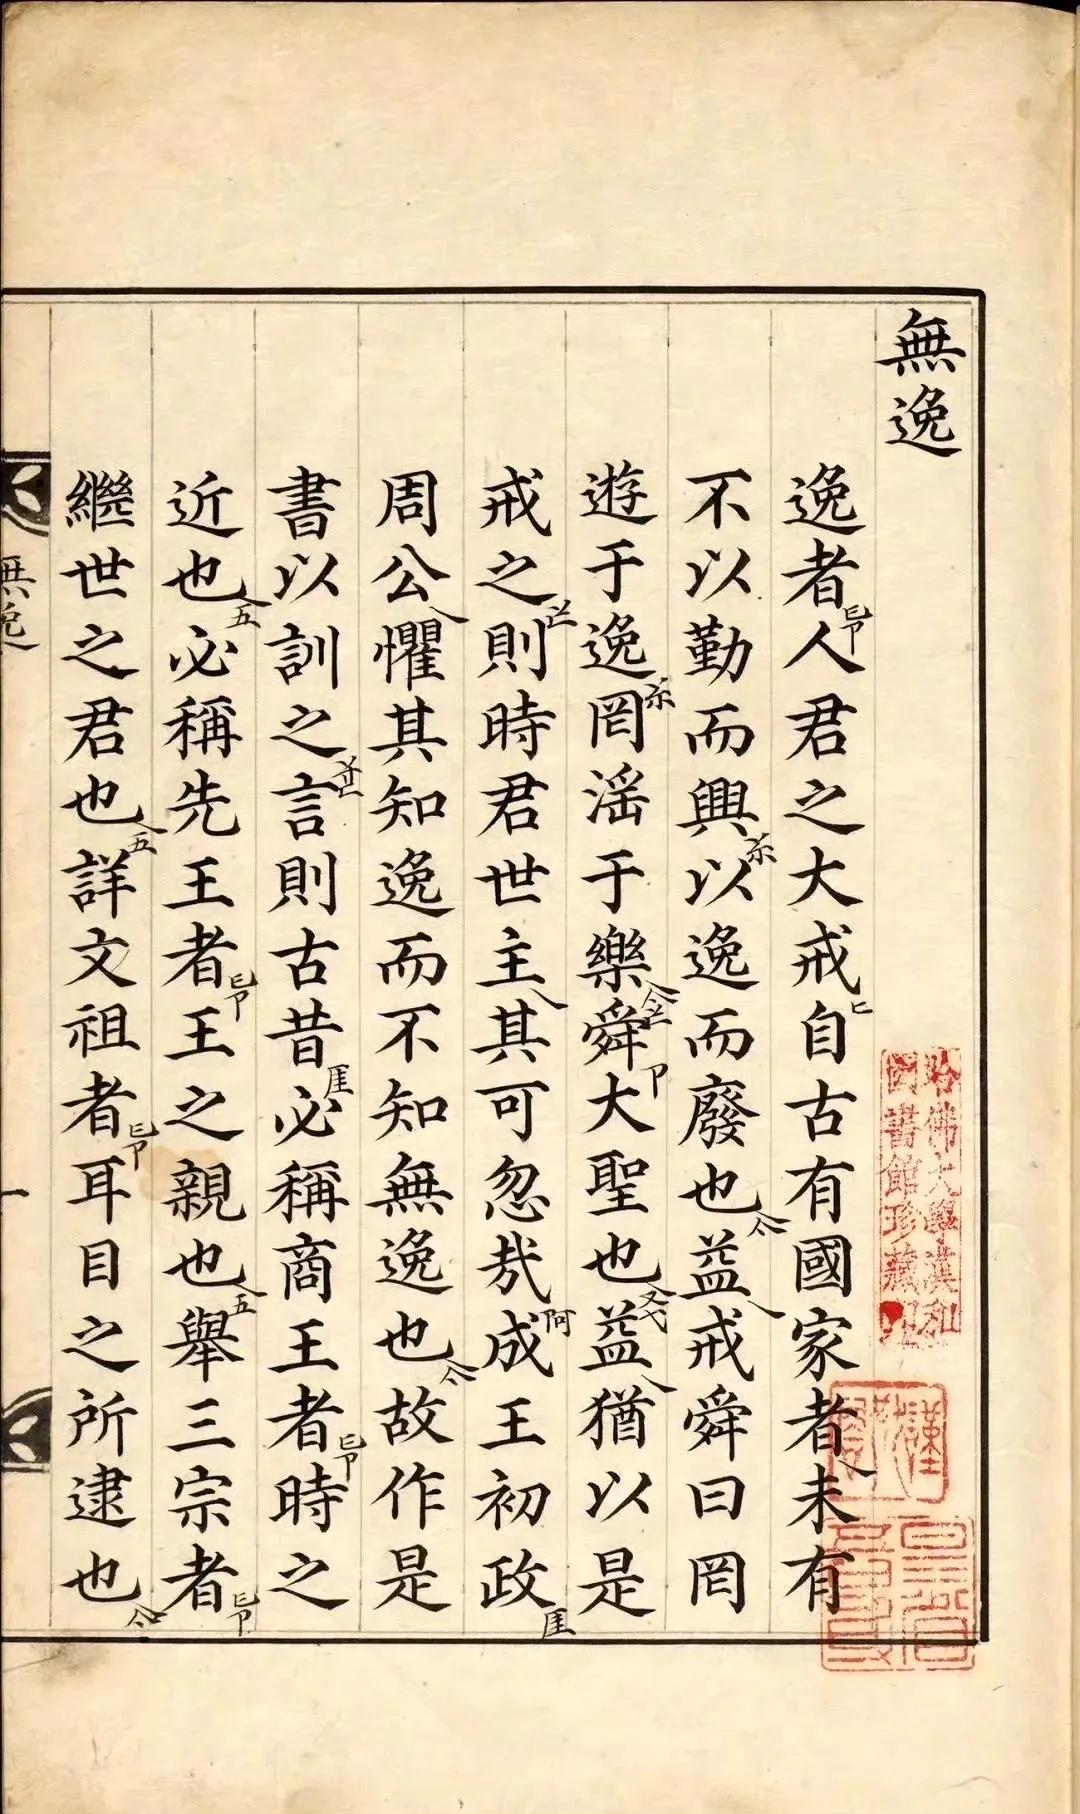 無逸
逸者人君之大戒自古有國家者未有
不以勤而興以逸而廢也益戒舜曰罔
遊于逸罔滛于樂舜大聖也益猶以是
戒之則時君世主其可忽哉成王初政
周公懼其知逸而不知無逸也故作是
書以訓之言則古昔必稱商王者時之
近也必稱先王者王之親也舉三宗者
繼世之君也詳文祖者耳目之所逮也
無逸
一
哈佛大學漢和
圖書館珍藏印